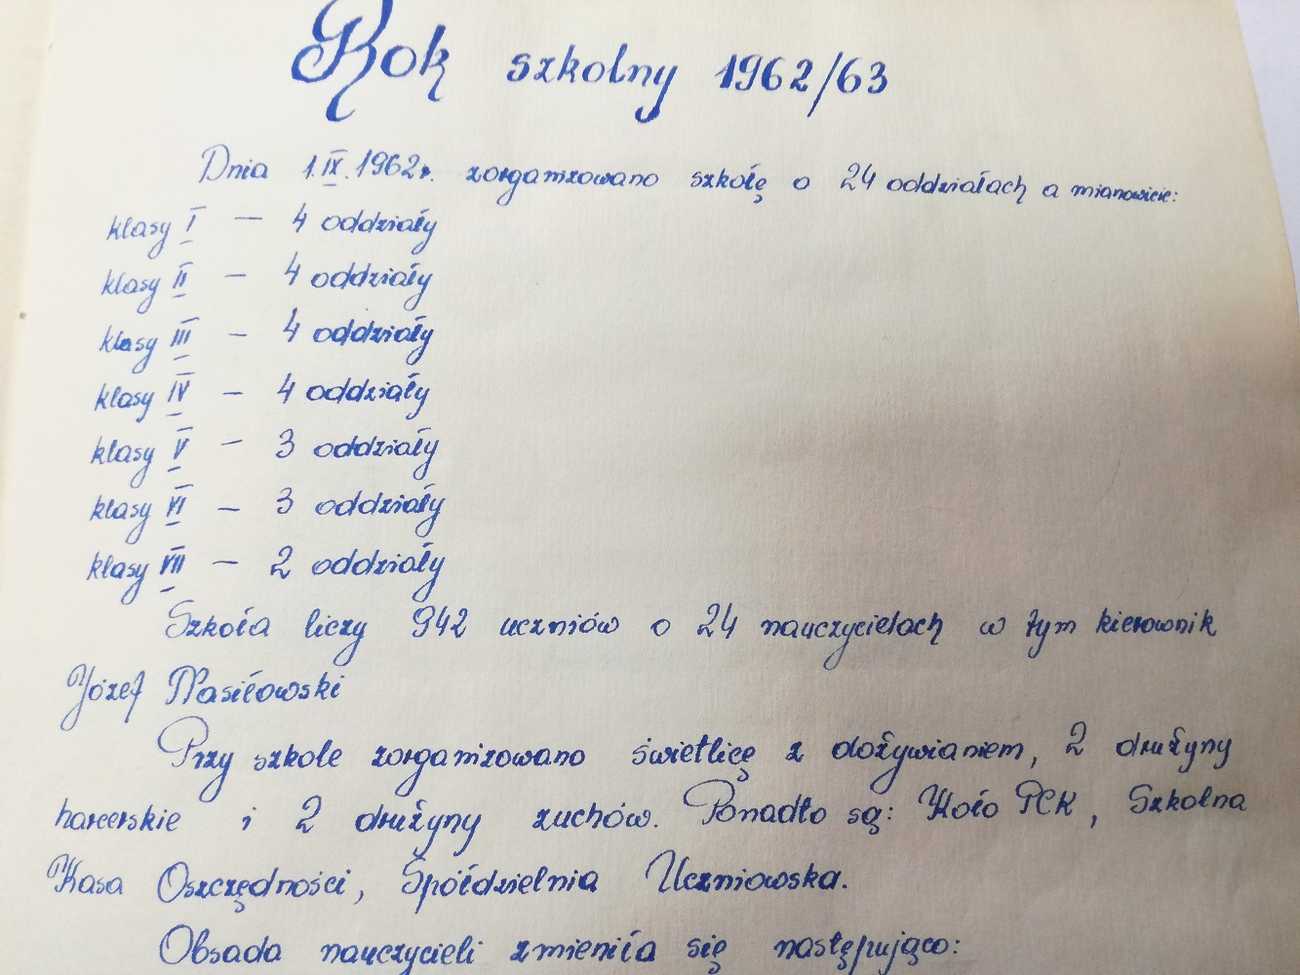 Rok szkolny 1962/63
Dnia 1.IX.1962r. zorganizowano szkołę o 24 oddziałach a mianowicie:
klasy I — 4 oddziały
klasy II — 4 oddziały
klasy III — 4 oddziały
klasy IV — 4 oddziały
klasy V — 3 oddziały
klasy VI — 3 oddziały
klasy VII — 2 oddziały
Szkoła liczy 942 uczniów o 24 nauczycielach w tym kierownik
Józef Wasiłowski
Przy szkole zorganizowano świetlicę z dożywianiem, 2 drużyny
harcerskie i 2 drużyny zuchów. Ponadto są: Koło PCK, Szkolna
Kasa Oszczędności, Spółdzielnia Uczniowska.
Obsada nauczycieli zmieniła się następująco: